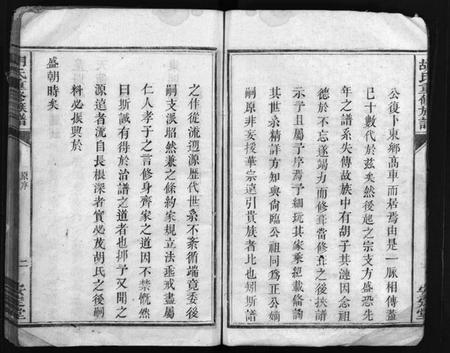 胡氏重修族譜
公復卜東鄉高車而居焉由是一脈相傳蓋
已十數代於茲矣然後起之宗支方盛恐先
年之譜系失傳故族中有胡子其漣因念祖
德於不忘遂竭力而修葺當修葺之後挾譜
示予且屬予序焉予細玩其家乘紀載條詢
其世系精詳方知與衡臨公祖同為正公嫡
嗣原非妄援華宗遠引貴族者比也矧斯譜
之作從流遡源歷代世系不紊循端竟委後
嗣支派昭然兼之條約家規立法垂戒盡屬
仁人孝子之言修身齊家之道因不禁慨然
曰斯誠有得於治譜之道者也抑予又聞之
源遠者流自長根深者實必茂胡氏之後嗣
料必振興於
盛朝時矣
胡氏重修族譜
原序
二
安定堂